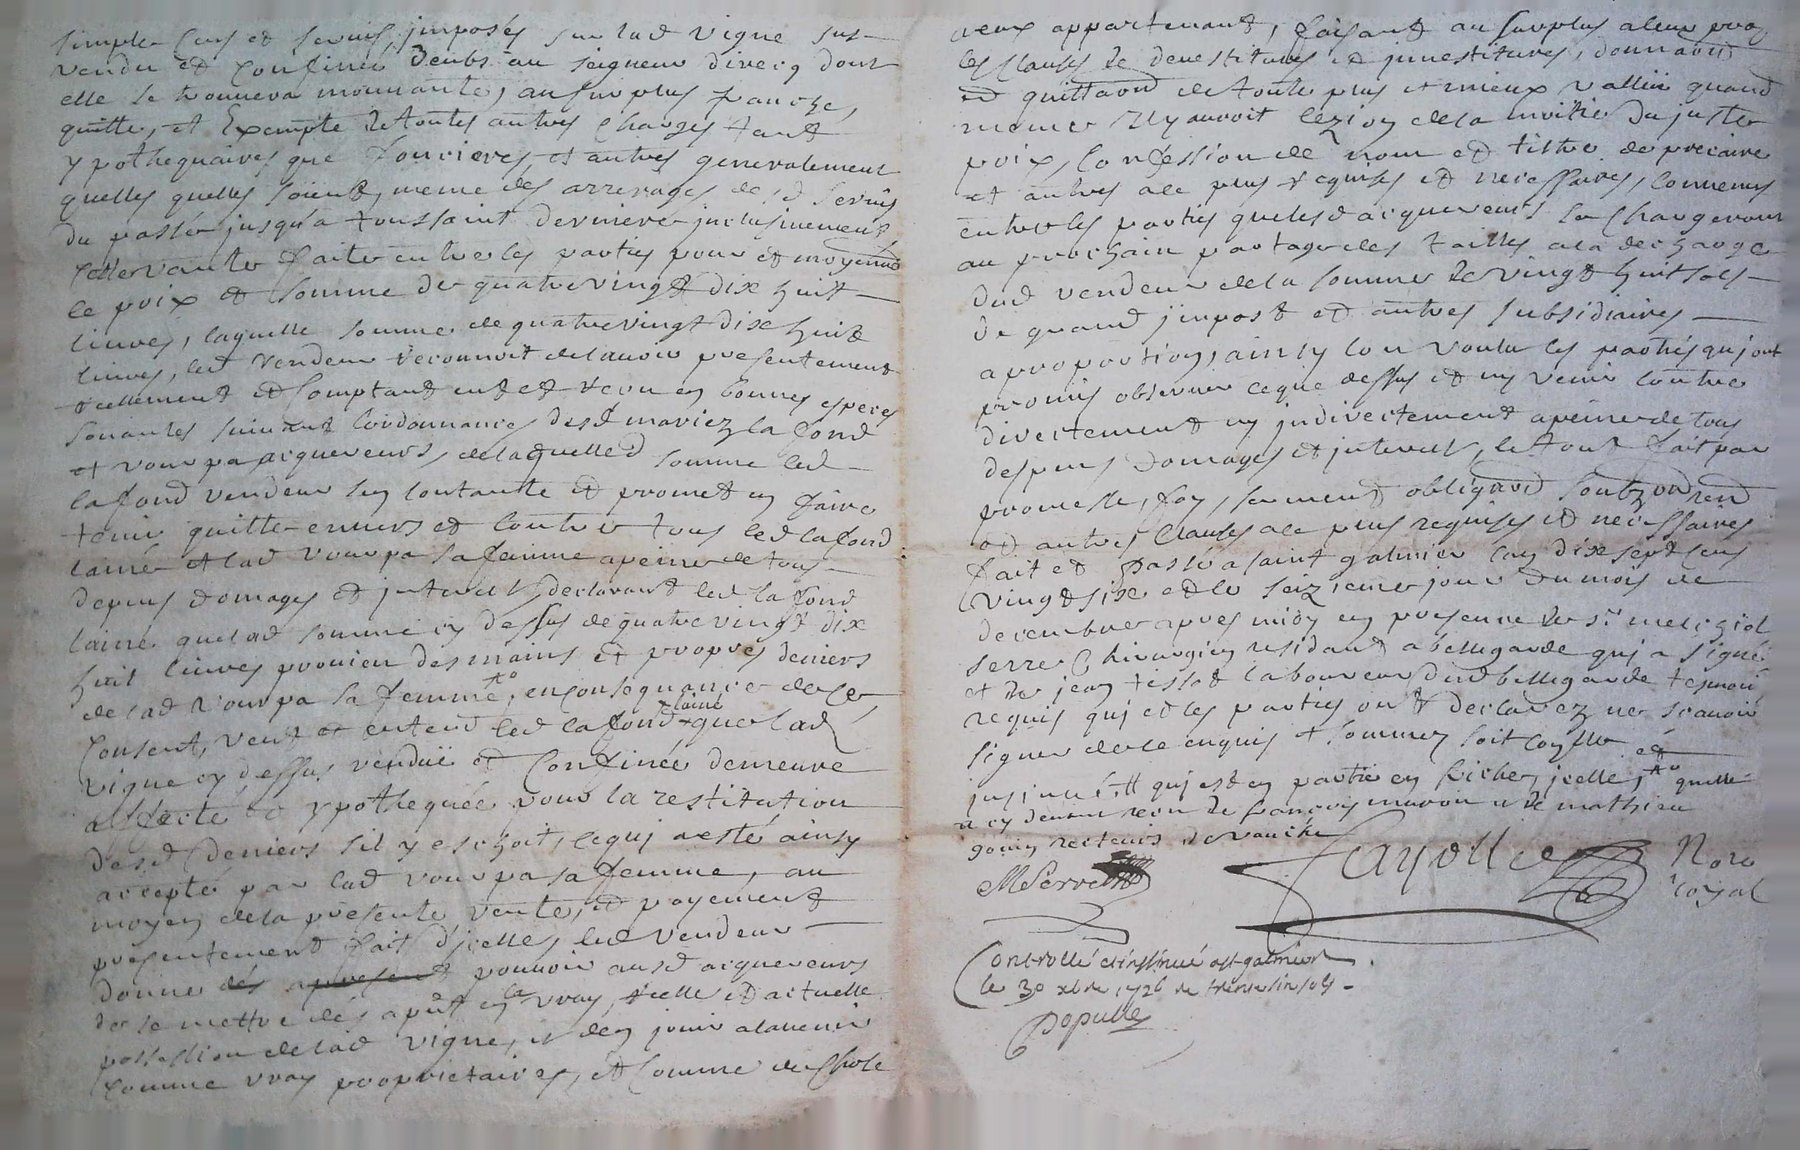 simple cens et servis imposés sur lad vigne sus
vendu et confinée deubs au seigneur direcq dont
elle se trouvera mouvante, au surplus franche,
quitte, et Exempte de toutes autres charges tant
ypothequaires que foncieres et autres generalement
quelles quelles soient, meme des arrerages de sd servis
du passé jusqu'a toussaint derniere inclusivement
cette vante faite entre les parties pour et moyenant
le prix et somme de quatre vingt dix huit
livres, laquelle somme de quatre vingt dix huit
livres, led vendeur reconnoit de lavoir presentement
reellement et comptant eut et receu en bonnes especes
sonantes suivant lordonnance desd mariez la fond
et vourpa acquereurs, de laquelle d somme led
lafond vendeur sen contante et promet en faire
tenir quitte envers et contre tous led lafond
lainé et lad vourpa sa femme a peine de tous
depens domages et interets, declarant led la fond
laine que lad somme cy dessus de quatre vingt dix
huit livres provien des mains et propres deniers
de lad vourpa sa femme, en consequance de ce
consent, veut et entend led lafond laine que lad
vigne cy dessus vendüe et confinée demeure
affecte et ypothequée pour la restitution
desd deniers sil y eschoit, ce qui a esté ainsy
accepté par lad vourpa sa femme, au
moyen de la presente vente, et payement
presentement fait d'icelle, led vendeur
donne dés apresent pouvoir ausd acquereurs
de se mettre dés apñt en la vray, réelle et actuelle
possession de lad vigne, et den jouir a lavenir
comme vrays proprietaires, et comme de chose
a eux appartenant, faisant au surplus a leur proffit
les clauses de devestitures et investitures, donnant
et quittant de toute plus et mieux vallüe quand
meme il y auroit lezion de la moitié du juste
prix, confession de nom et tiltre de precaire
et autres ace plus requises et necessaires, convenus
entre les parties que lesd acquereurs se chargeront
au prochain partage des tailles a la decharge
dud vendeur de la somme de vingt huit sols
de grand impost et autres subsidiaires
a proportion, ainsy lon voulu les parties qui ont
promis observer ce que dessus et ny venir contre
directement ny indirectement a peine de tous
despens domages et interets, le tout fait par
promesse, foy, serment obligaõn soubz
et autres clauses ace plus requises et necessaires
fait et passé a saint galmier lan dix sept cens
vingt six et le seizieme jour du mois de
decembre apres midy en presence de sr melchiol
serre chirurgien residant a bellegarde qui a signé
et de jean tissot laboureur dud bellegarde temoins
requis qui et les parties ont declarez ne scavoir
signer de ce enquis et sommez soit conllé et
insinué qui est en partie en friche, icelle quelle
a cy devant receu de françois et de mathieu
gouin recteurs
MSerre
Fayolle Nore royal
Controllé et insinué a st galmier
le 30 xbre 1726 re trente cinq sols
Dopulle